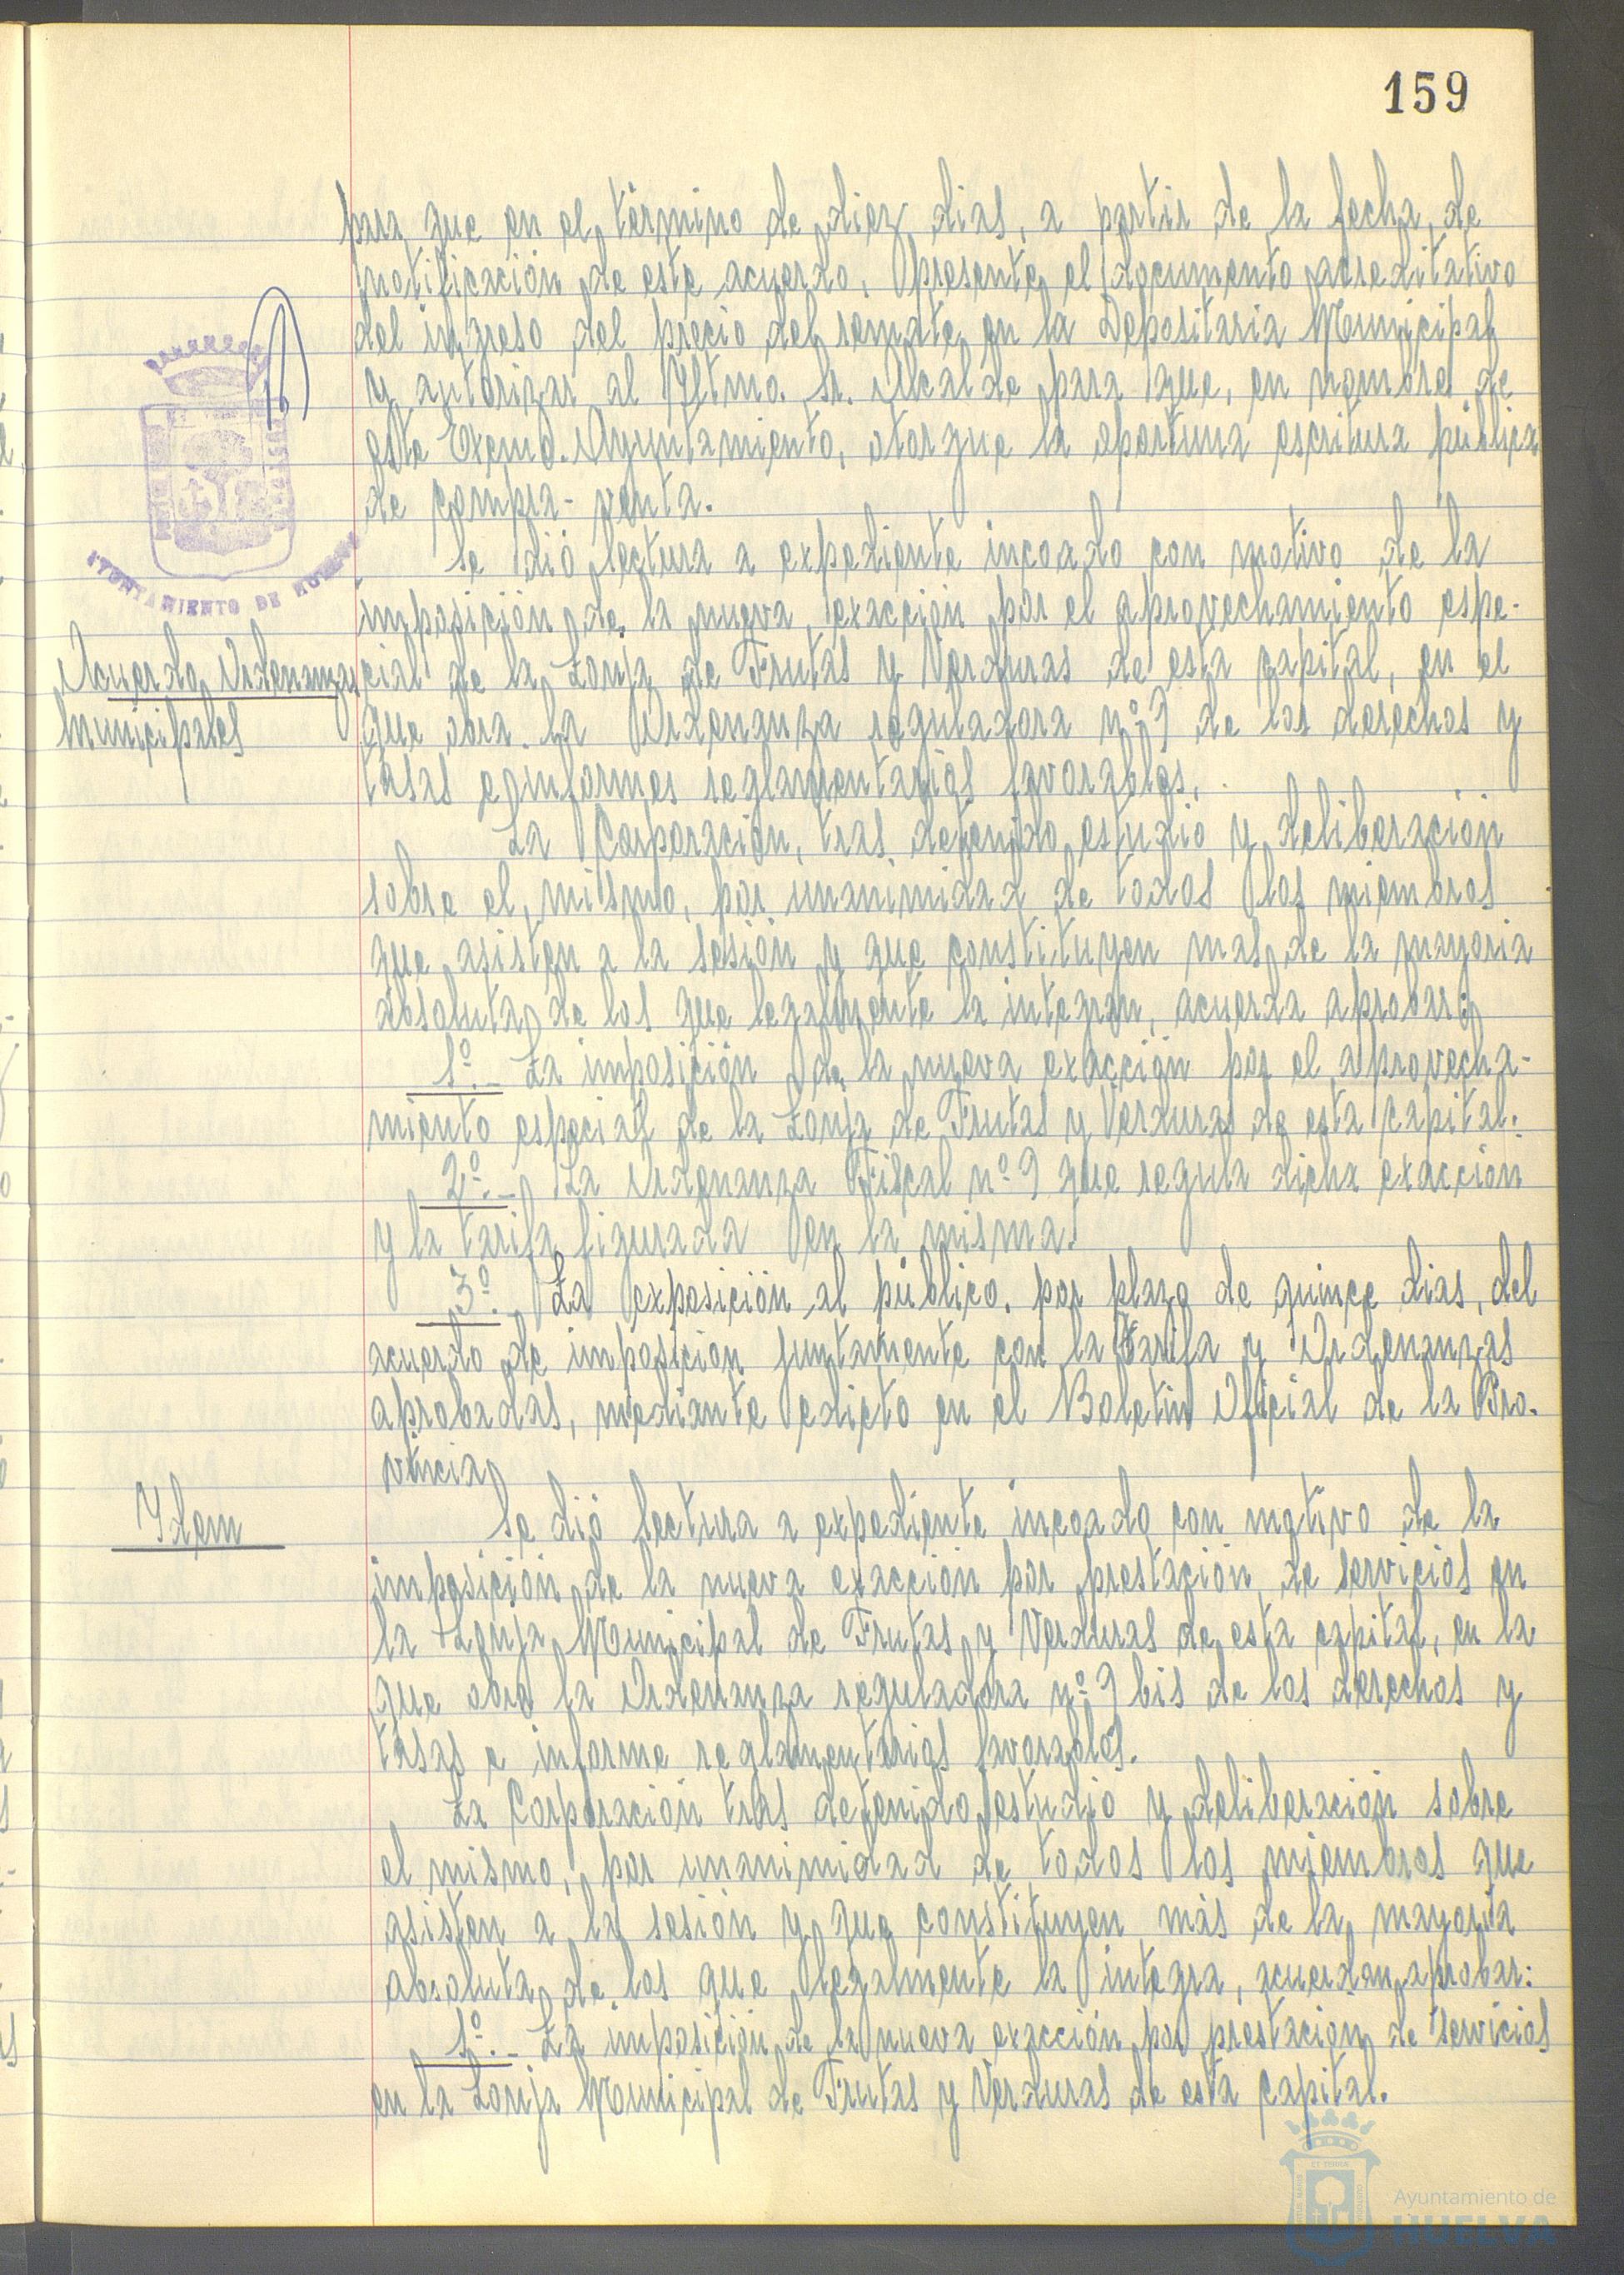 159
para que en el término de diez dias, a partir de la fecha de
notificación de este acuerdo, presente el documento acreditativo
del ingreso del precio del remate en la Depositaria Municipal
y autorizar al Yltmo. Sr. Alcalde para que, en nombre de
este Excmo. Ayuntamiento, otorgue la oportuna escritura pública
de compra-venta.
AYUNTAMIENTO DE HUELVA
Acuerdo Ordenanzas
Municipales
Se dió lectura a expediente incoado con motivo de la
imposición de la nueva exacción por el aprovechamiento espe-
cial de la Lonja de Frutas y Verduras de esta capital, en el
que obra la Ordenanza reguladora nº 9 de los derechos y
tasas e informes reglamentarios favorables.
La Corporación, tras detenido estudio y deliberación
sobre el mismo, por unanimidad de todos los miembros
que asisten a la sesión y que constituyen mas de la mayoria
absoluta de los que legalmente la integran, acuerda aprobar:
1º.- La imposición de la nueva exacción por el aprovecha-
miento especial de la Lonja de Frutas y Verduras de esta capital.
2º.- La Ordenanza Fiscal nº 9 que regula dicha exacción
y la tarifa figurada en la misma.
3º.- La exposición al público, por plazo de quince dias, del
acuerdo de imposición juntamente con la Tarifa y Ordenanzas
aprobadas, mediante edicto en el Boletin Oficial de la Pro-
vincia.
Ydem
Se dió lectura a expediente incoado con motivo de la
imposición de la nueva exacción por prestación de servicios en
la Lonja Municipal de Frutas y Verduras de esta capital, en la
que obra la Ordenanza reguladora nº 9 bis de los derechos y
tasas e informe reglamentarios favorables.
La Corporación tras detenido estudio y deliberación sobre
el mismo, por unanimidad de todos los miembros que
asisten a la sesión y que constituyen más de la mayoría
absoluta de los que legalmente la integra, acuerdan aprobar:
1º.- La imposición de la nueva exacción por prestación de servicios
en la Lonja Municipal de Frutas y Verduras de esta capital.
Ayuntamiento de
HUELVA